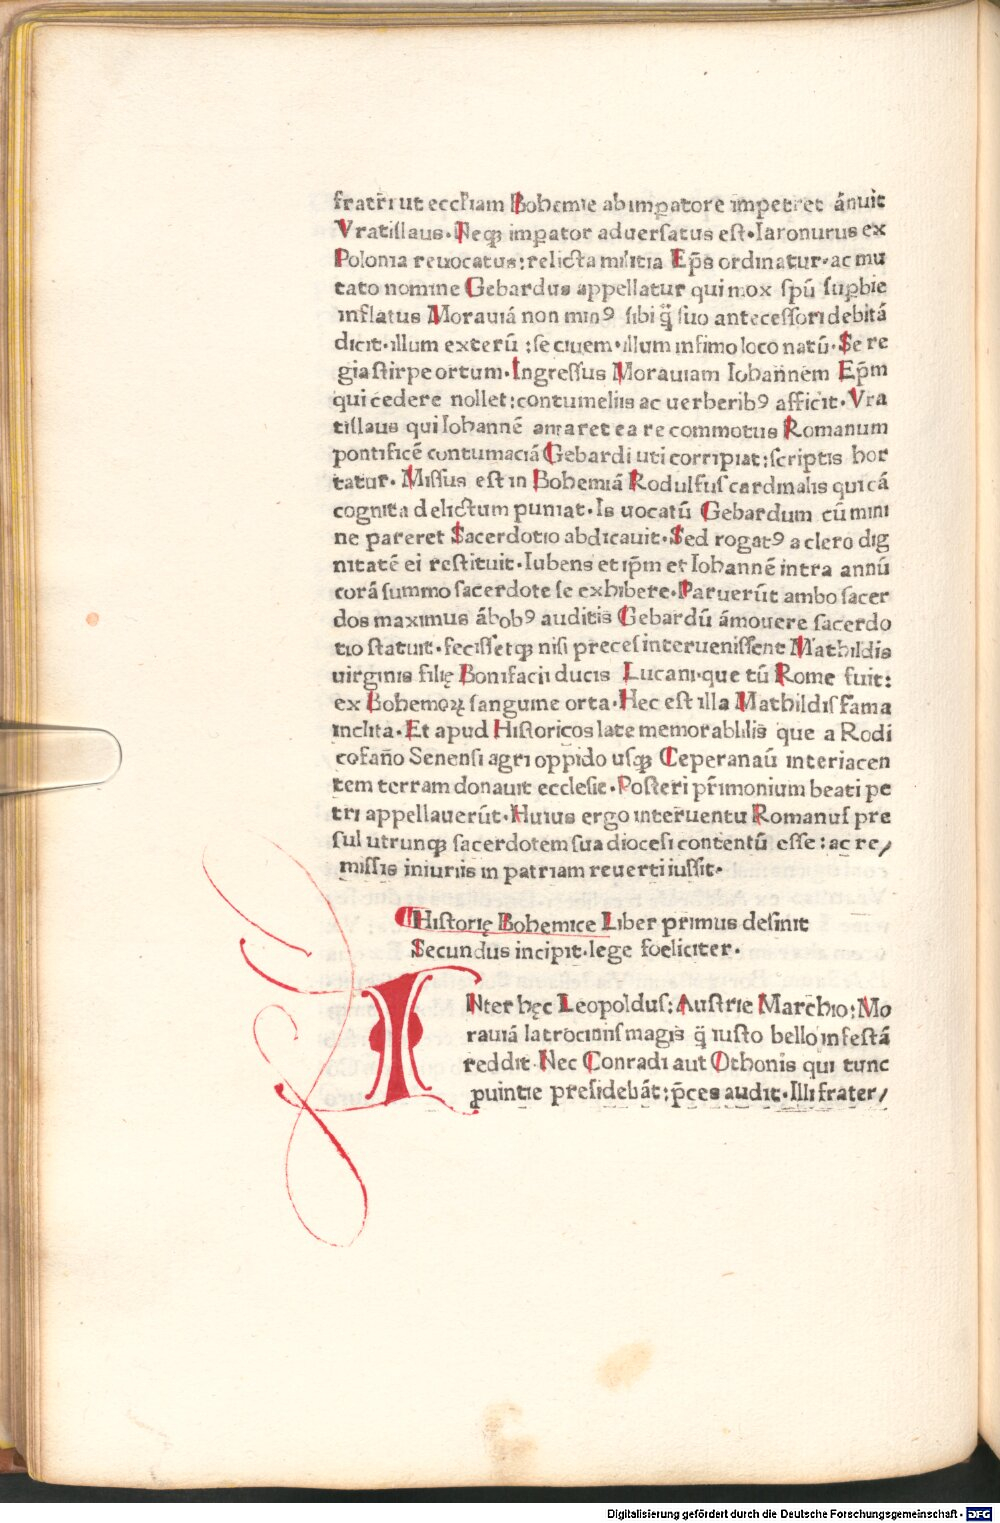 fratri ut eccliam Bohemie ab impatore impetret ánuit
Vratislaus. Neqꝫ impator aduersatus est. Iaronurus ex
Polonia reuocatus: relicta militia Ep̃s ordinatur. ac mu
tato nomine Gebardus appellatur qui mox spũ supbie
inflatus Morauiã non minꝯ sibi q̃ suo antecessori debitã
dicit. illum exterũ: se ciuem. illum infimo loco natũ. Se re
gia stirpe ortum. Ingressus Morauiam Iohannem Ep̃m
qui cedere nollet: contumeliis ac uerberibꝯ afficit. Vra
tislaus qui Iohannẽ amaret ea re commotus Romanum
pontificẽ contumaciã Gebardi uti corripiat: scriptis hor
tatur. Missus est in Bohemiã Rodulfus cardinalis qui cã
cognita delictum puniat. Is uocatũ Gebardum cũ mini
ne pareret Sacerdotio abdicauit. Sed rogatꝯ a clero dig
nitatẽ ei restituit. Iubens et ip̃m et Iohannẽ intra annũ
corã summo sacerdote se exhibere. Paruerũt ambo sacer
dos maximus ãbobꝯ auditis Gebardũ ámouere sacerdo
tio statuit. fecissetqꝫ nisi preces interuenissent Mathildis
uirginis filię Bonifacii ducis Lucani. que tũ Rome fuit:
ex Bohemoꝝ sanguine orta. Hec est illa Mathildis fama
inclita. Et apud Historicos late memorabilis que a Rodi
cofaño Senensi agri oppido usqꝫ Ceperanaũ interiacen
tem terram donauit ecclesie. Posteri pr̃imonium beati pe
tri appellauerũt. Huius ergo interuentu Romanus pre
sul utrunqꝫ sacerdotem sua diocesi contentũ esse: ac re/
missis iniuriis in patriam reuerti iussit.
Historię Bohemice Liber primus desinit
Secundus incipit. lege foeliciter.
INter hęc Leopoldus: Austrie Marchio: Mo
rauiã latrociniis magis q̃ iusto bello infestã
reddit. Nec Conradi aut Othonis qui tunc
ꝓuintie presidebãt: p̃ces audit. Illi frater/
Digitalisierung gefördert durch die Deutsche Forschungsgemeinschaft - DFG